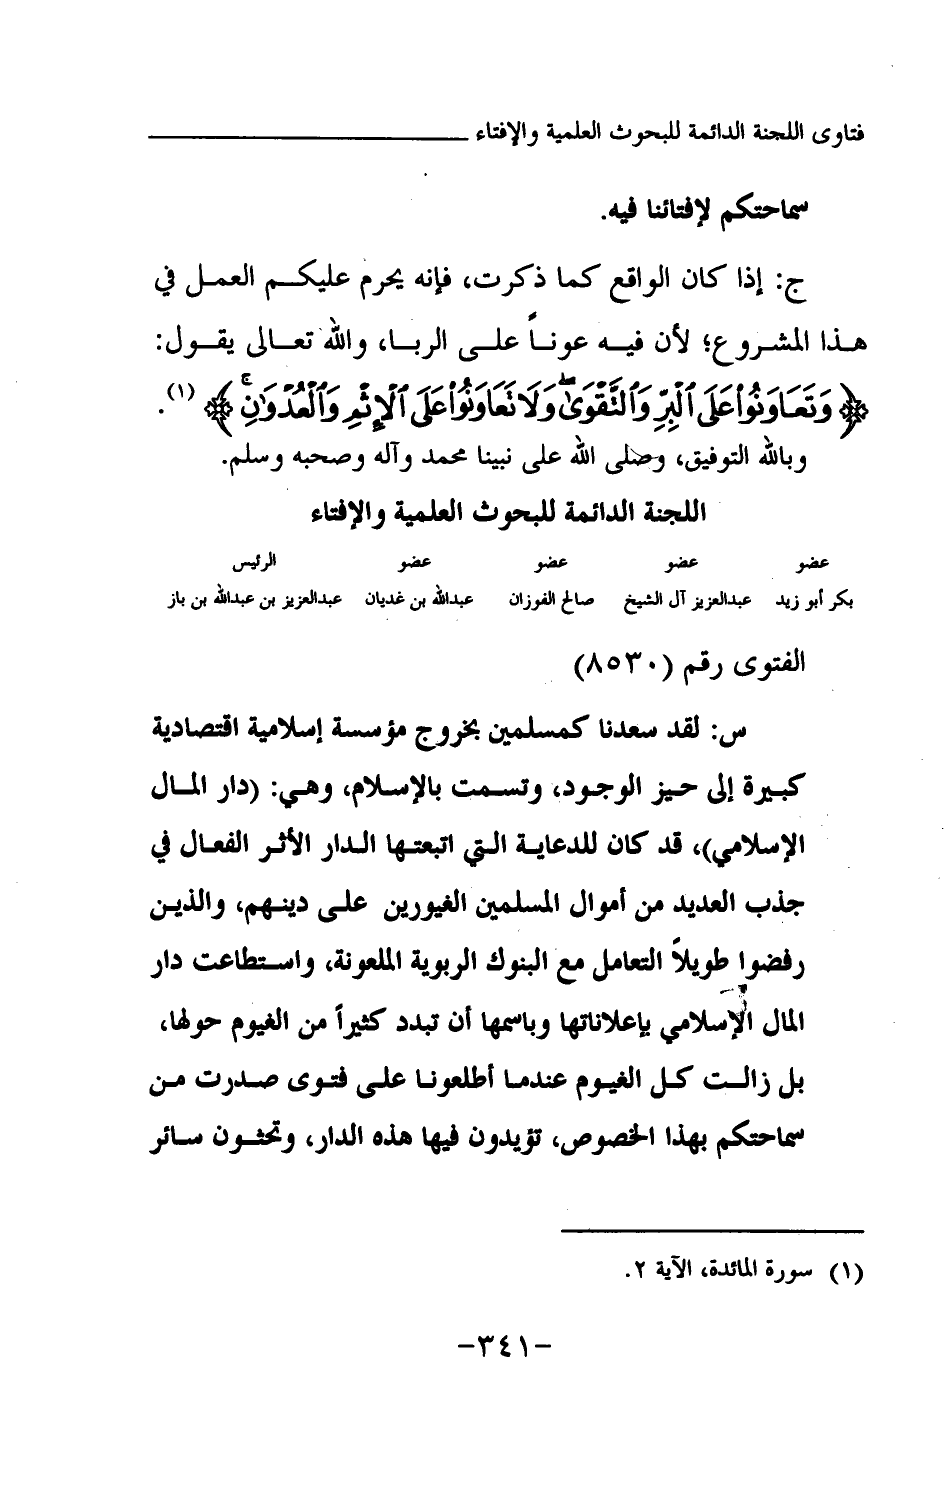 فتاوى اللجنة الدائمة للبحوث العلمية والإفتاء
سماحتكم لإفتائنا فيه.
ج: إذا كان الواقع كما ذكرت، فإنه يحرم عليكم العمل في
هذا المشروع؛ لأن فيه عوناً على الربا، والله تعالى يقول:
﴿ وَتَعَاوَنُوا۟ عَلَى ٱلْبِرِّ وَٱلتَّقْوَىٰ ۖ وَلَا تَعَاوَنُوا۟ عَلَى ٱلْإِثْمِ وَٱلْعُدْوَٰنِ ۚ ﴾ (١).
وبالله التوفيق، وصلى الله على نبينا محمد وآله وصحبه وسلم.
اللجنة الدائمة للبحوث العلمية والإفتاء
عضو عضو عضو عضو الرئيس
بكر أبو زيد عبدالعزيز آل الشيخ صالح الفوزان عبدالله بن غديان عبدالعزيز بن عبدالله بن باز
الفتوى رقم (٨٥٣٠)
س: لقد سعدنا كمسلمين بخروج مؤسسة إسلامية اقتصادية
كبيرة إلى حيز الوجود، وتسمت بالإسلام، وهي: (دار المال
الإسلامي)، قد كان للدعاية التي اتبعتها الدار الأثر الفعال في
جذب العديد من أموال المسلمين الغيورين على دينهم، والذين
رفضوا طويلاً التعامل مع البنوك الربوية الملعونة، واستطاعت دار
المال الإسلامي بإعلاناتها وباسمها أن تبدد كثيراً من الغيوم حولها،
بل زالت كل الغيوم عندما أطلعونا على فتوى صدرت من
سماحتكم بهذا الخصوص، تؤيدون فيها هذه الدار، وتحثون سائر
(١) سورة المائدة، الآية ٢.
-٣٤١-